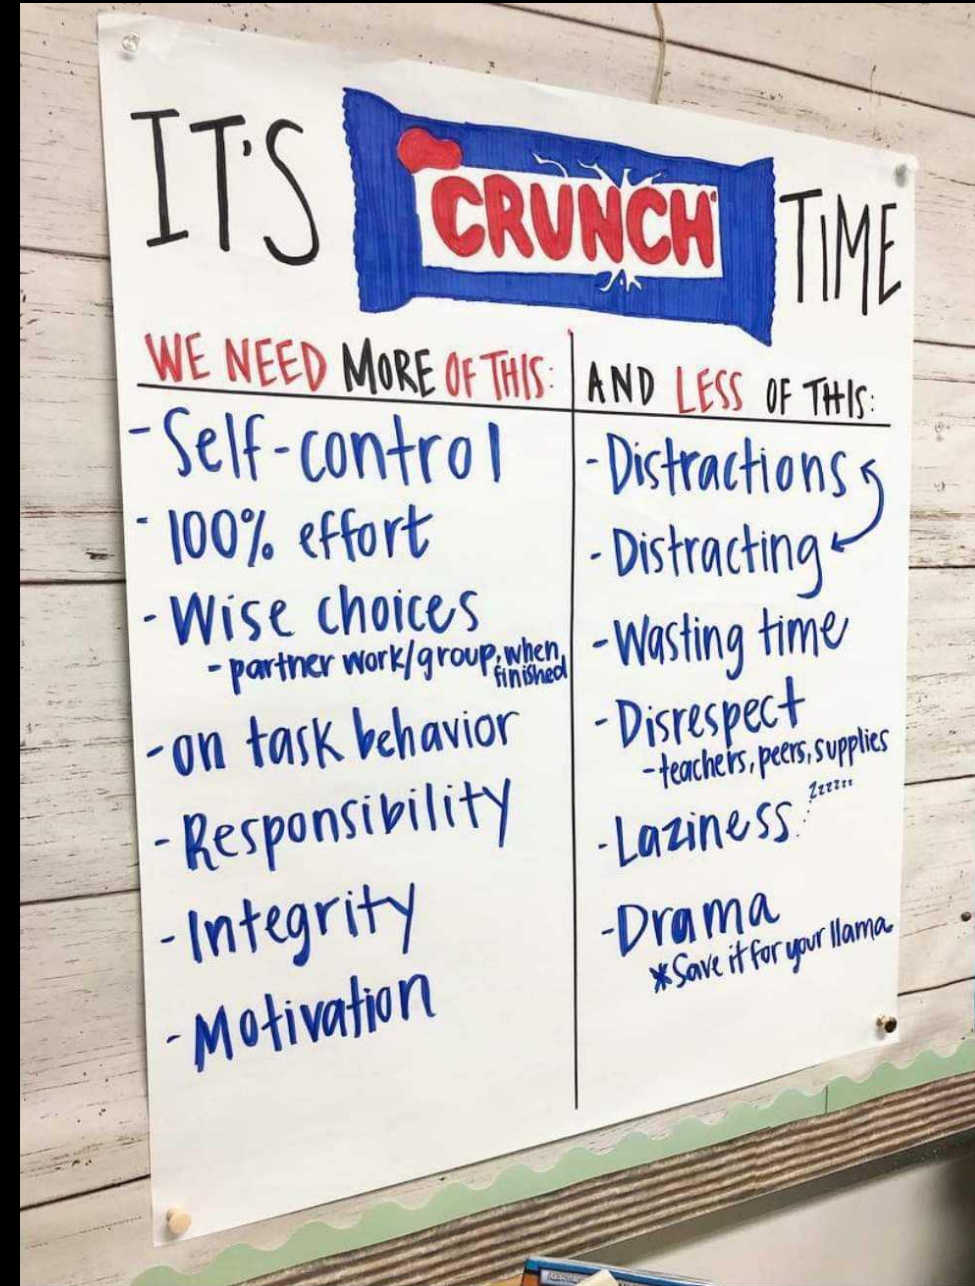 IT'S CRUNCH TIME
WE NEED MORE OF THIS:
- Self-control
- 100% effort
- Wise choices
- partner work/group, when
finished
- on task behavior
- Responsibility
- Integrity
- Motivation
AND LESS OF THIS:
- Distractions
- Distracting
- Wasting time
- Disrespect
- teachers, peers, supplies
- Laziness zzzzzz
- Drama
* Save it for your llama